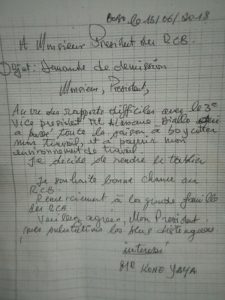 Bobo le 16/06/2018
A Monsieur President du RCB.
Objet: Demande de demission
Monsieur, President,
Au vu des rapports difficiles avec le 3e
Vice president Mr Diallo
a toute la saison à boycotter
mon travail, et à pourrir mon
environnement de travail.
Je décide de rendre le tablier
Je souhaite bonne chance au
RCB.
Remerciement à la grande famille
du RCB
Veuillez agréer, Mon President,
mes salutations les plus distinguées
interessé
Mr KONE YAYA